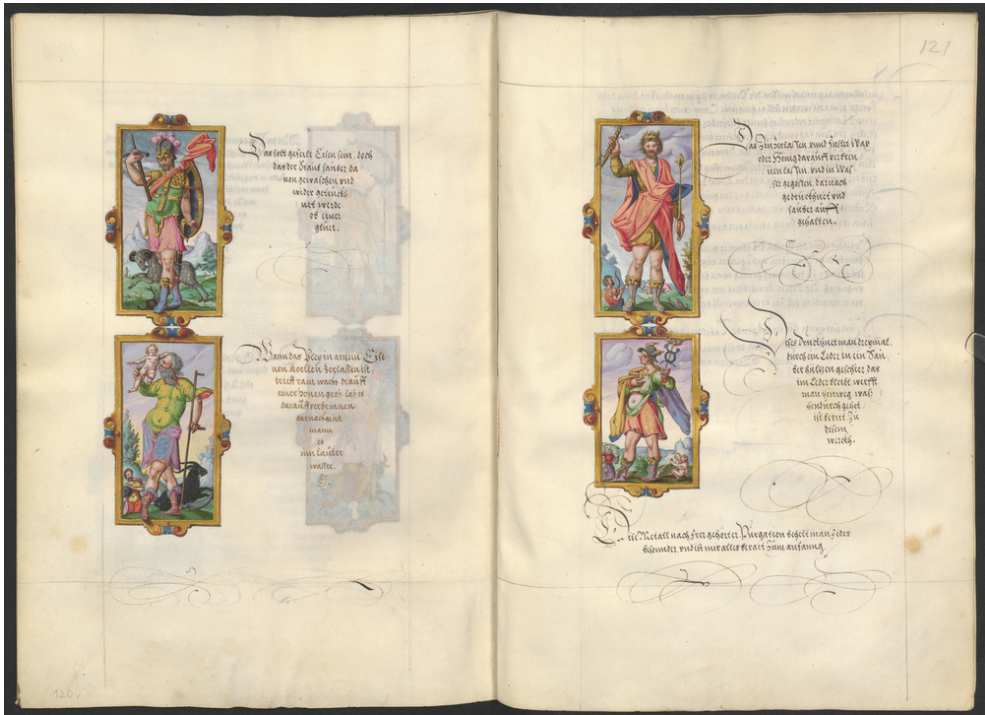 Das soll gefeilt Eisen sein, doch
das der Staub sauber da
von gewaschen vnd
wider
vnd werde
ob einer
gluet.
Wann das Pley in ainem Eisi
nen Koellen Zerlassen ist,
wachs drauff
darauff verbrinnen
darnach
mans
es
inn lauter
wasser.
121
Das Zin Zerlassen, vnnd hinder Wax
oder Honig darauff verbren
nen lassen, vnd in Was
ser gegossen, darnach
getrückhnet vnd
sauber auff
gehalten.
Dises man dreymal
durch ein Leder in ein Sau
ber geschier, das
im Leder bleibt, wirfft
man hinweg, was
hindurch gehet,
ist berait Zu
disem
werckh.
Die Metall nach Irer gehörter Purgation behelt man Jedes
besonder, vnd ist mit aller berait Zum anfanng.
120v